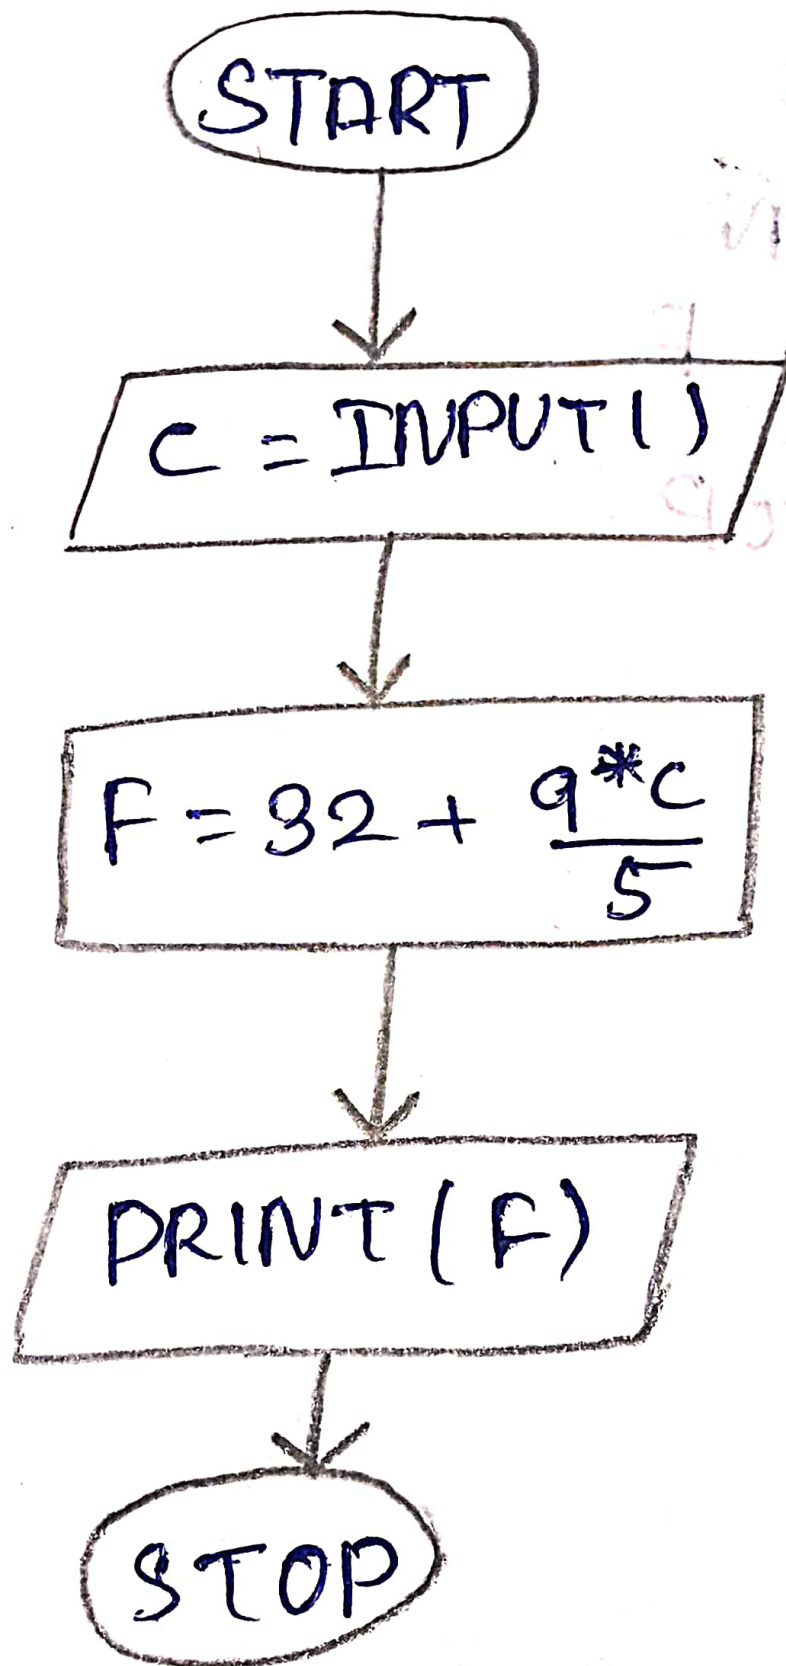 START
C = INPUT()
F = 32 + 9*C/5
PRINT(F)
STOP